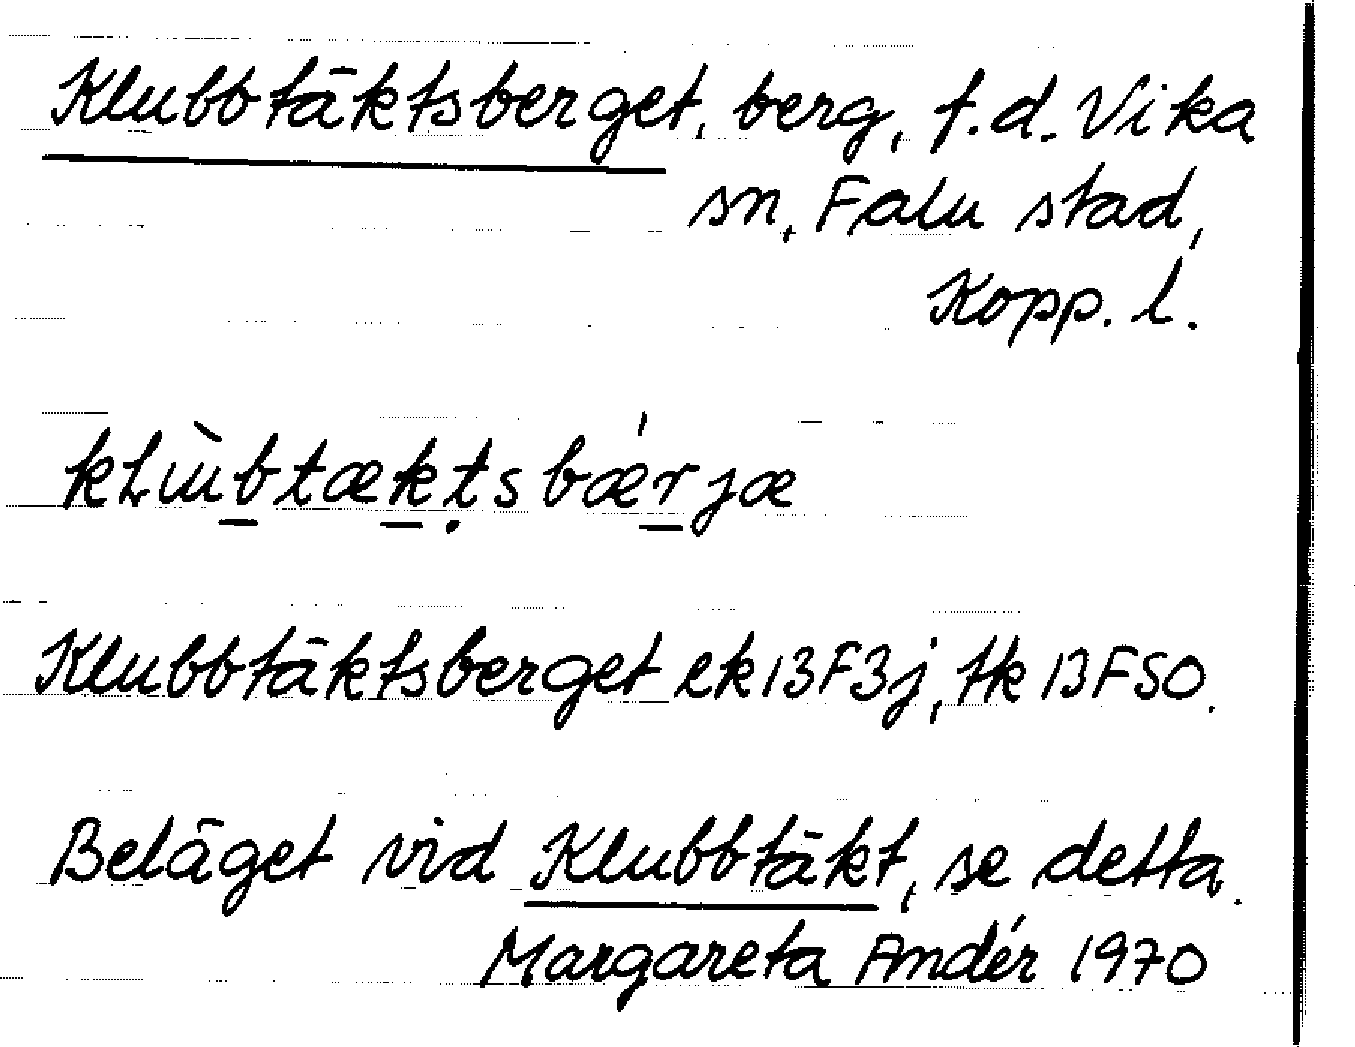 Klubbtäktsberget, berg, f.d. Vika
sn, Falu stad,
Kopp. l.
kLɯ̀b̲tæk̲ṭsbæŕ̲jæ
Klubbtäktsberget ek 13F3j, tk 13F SO.
Beläget vid Klubbtäkt, se detta.
Margareta Andér 1970